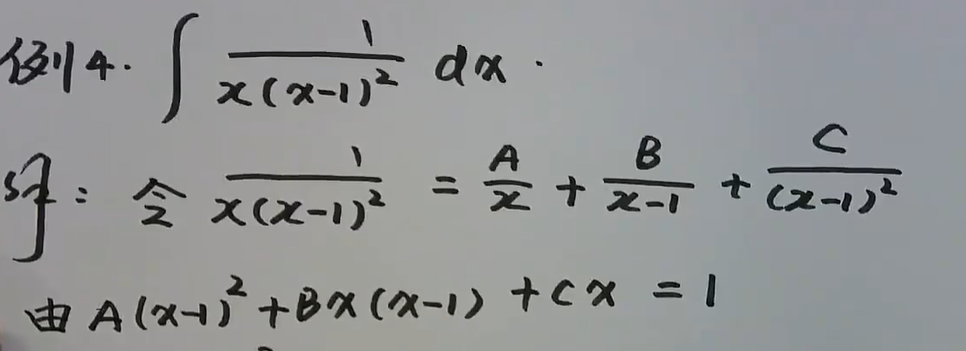 例4. ∫ 1/(x(x-1)²) dx.
解: 令 1/(x(x-1)²) = A/x + B/(x-1) + C/(x-1)²
由 A(x-1)² + Bx(x-1) + Cx = 1